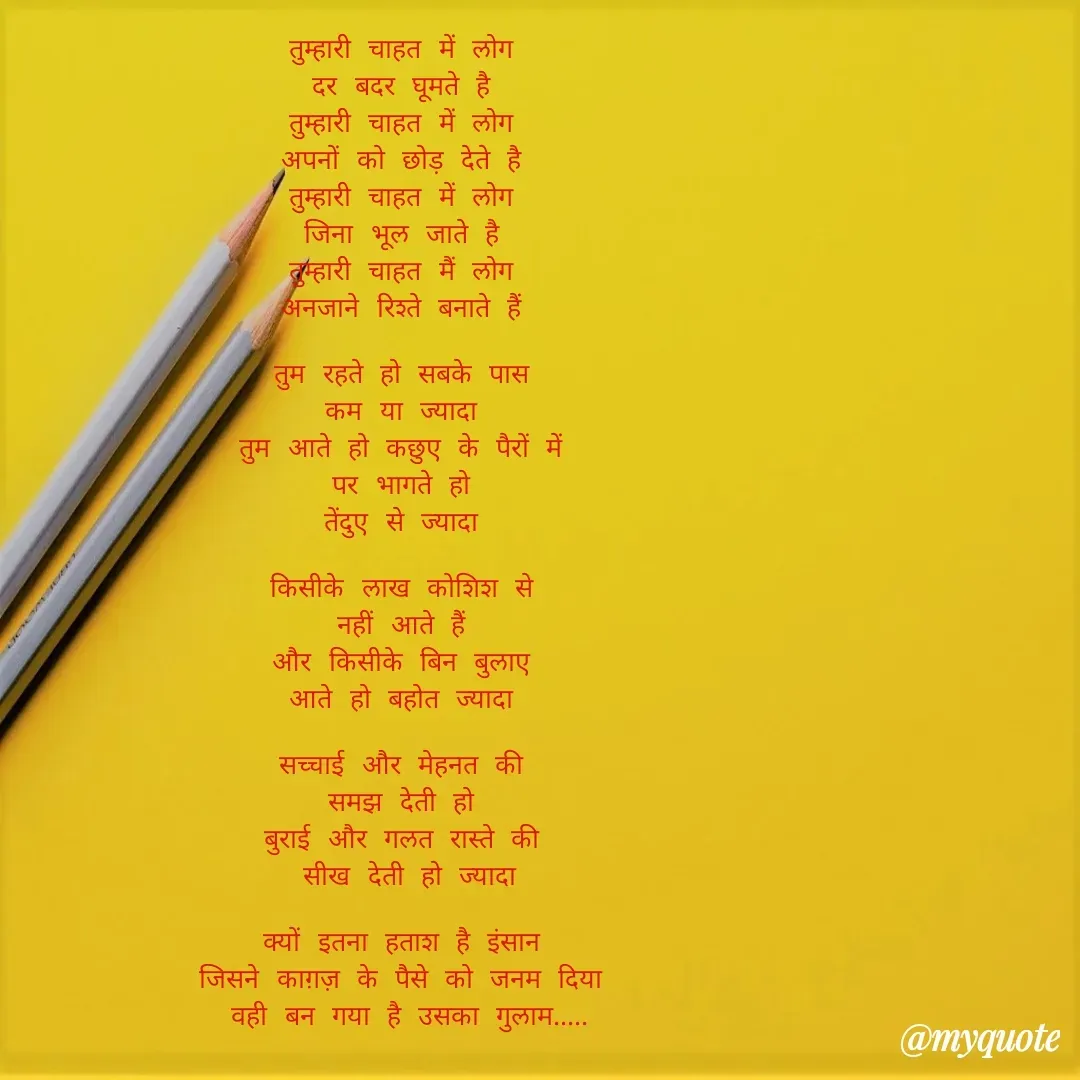 तुम्हारी चाहत में लोग
दर बदर घूमते है
तुम्हारी चाहत में लोग
अपनों को छोड़ देते है
तुम्हारी चाहत में लोग
जिना भूल जाते है
तुम्हारी चाहत मैं लोग
अनजाने रिश्ते बनाते हैं
तुम रहते हो सबके पास
कम या ज्यादा
तुम आते हो कछुए के पैरों में
पर भागते हो
तेंदुए से ज्यादा
किसीके लाख कोशिश से
नहीं आते हैं
और किसीके बिन बुलाए
आते हो बहोत ज्यादा
सच्चाई और मेहनत की
समझ देती हो
बुराई और गलत रास्ते की
सीख देती हो ज्यादा
क्यों इतना हताश है इंसान
जिसने काग़ज़ के पैसे को जनम दिया
वही बन गया है उसका गुलाम.....
@myquote